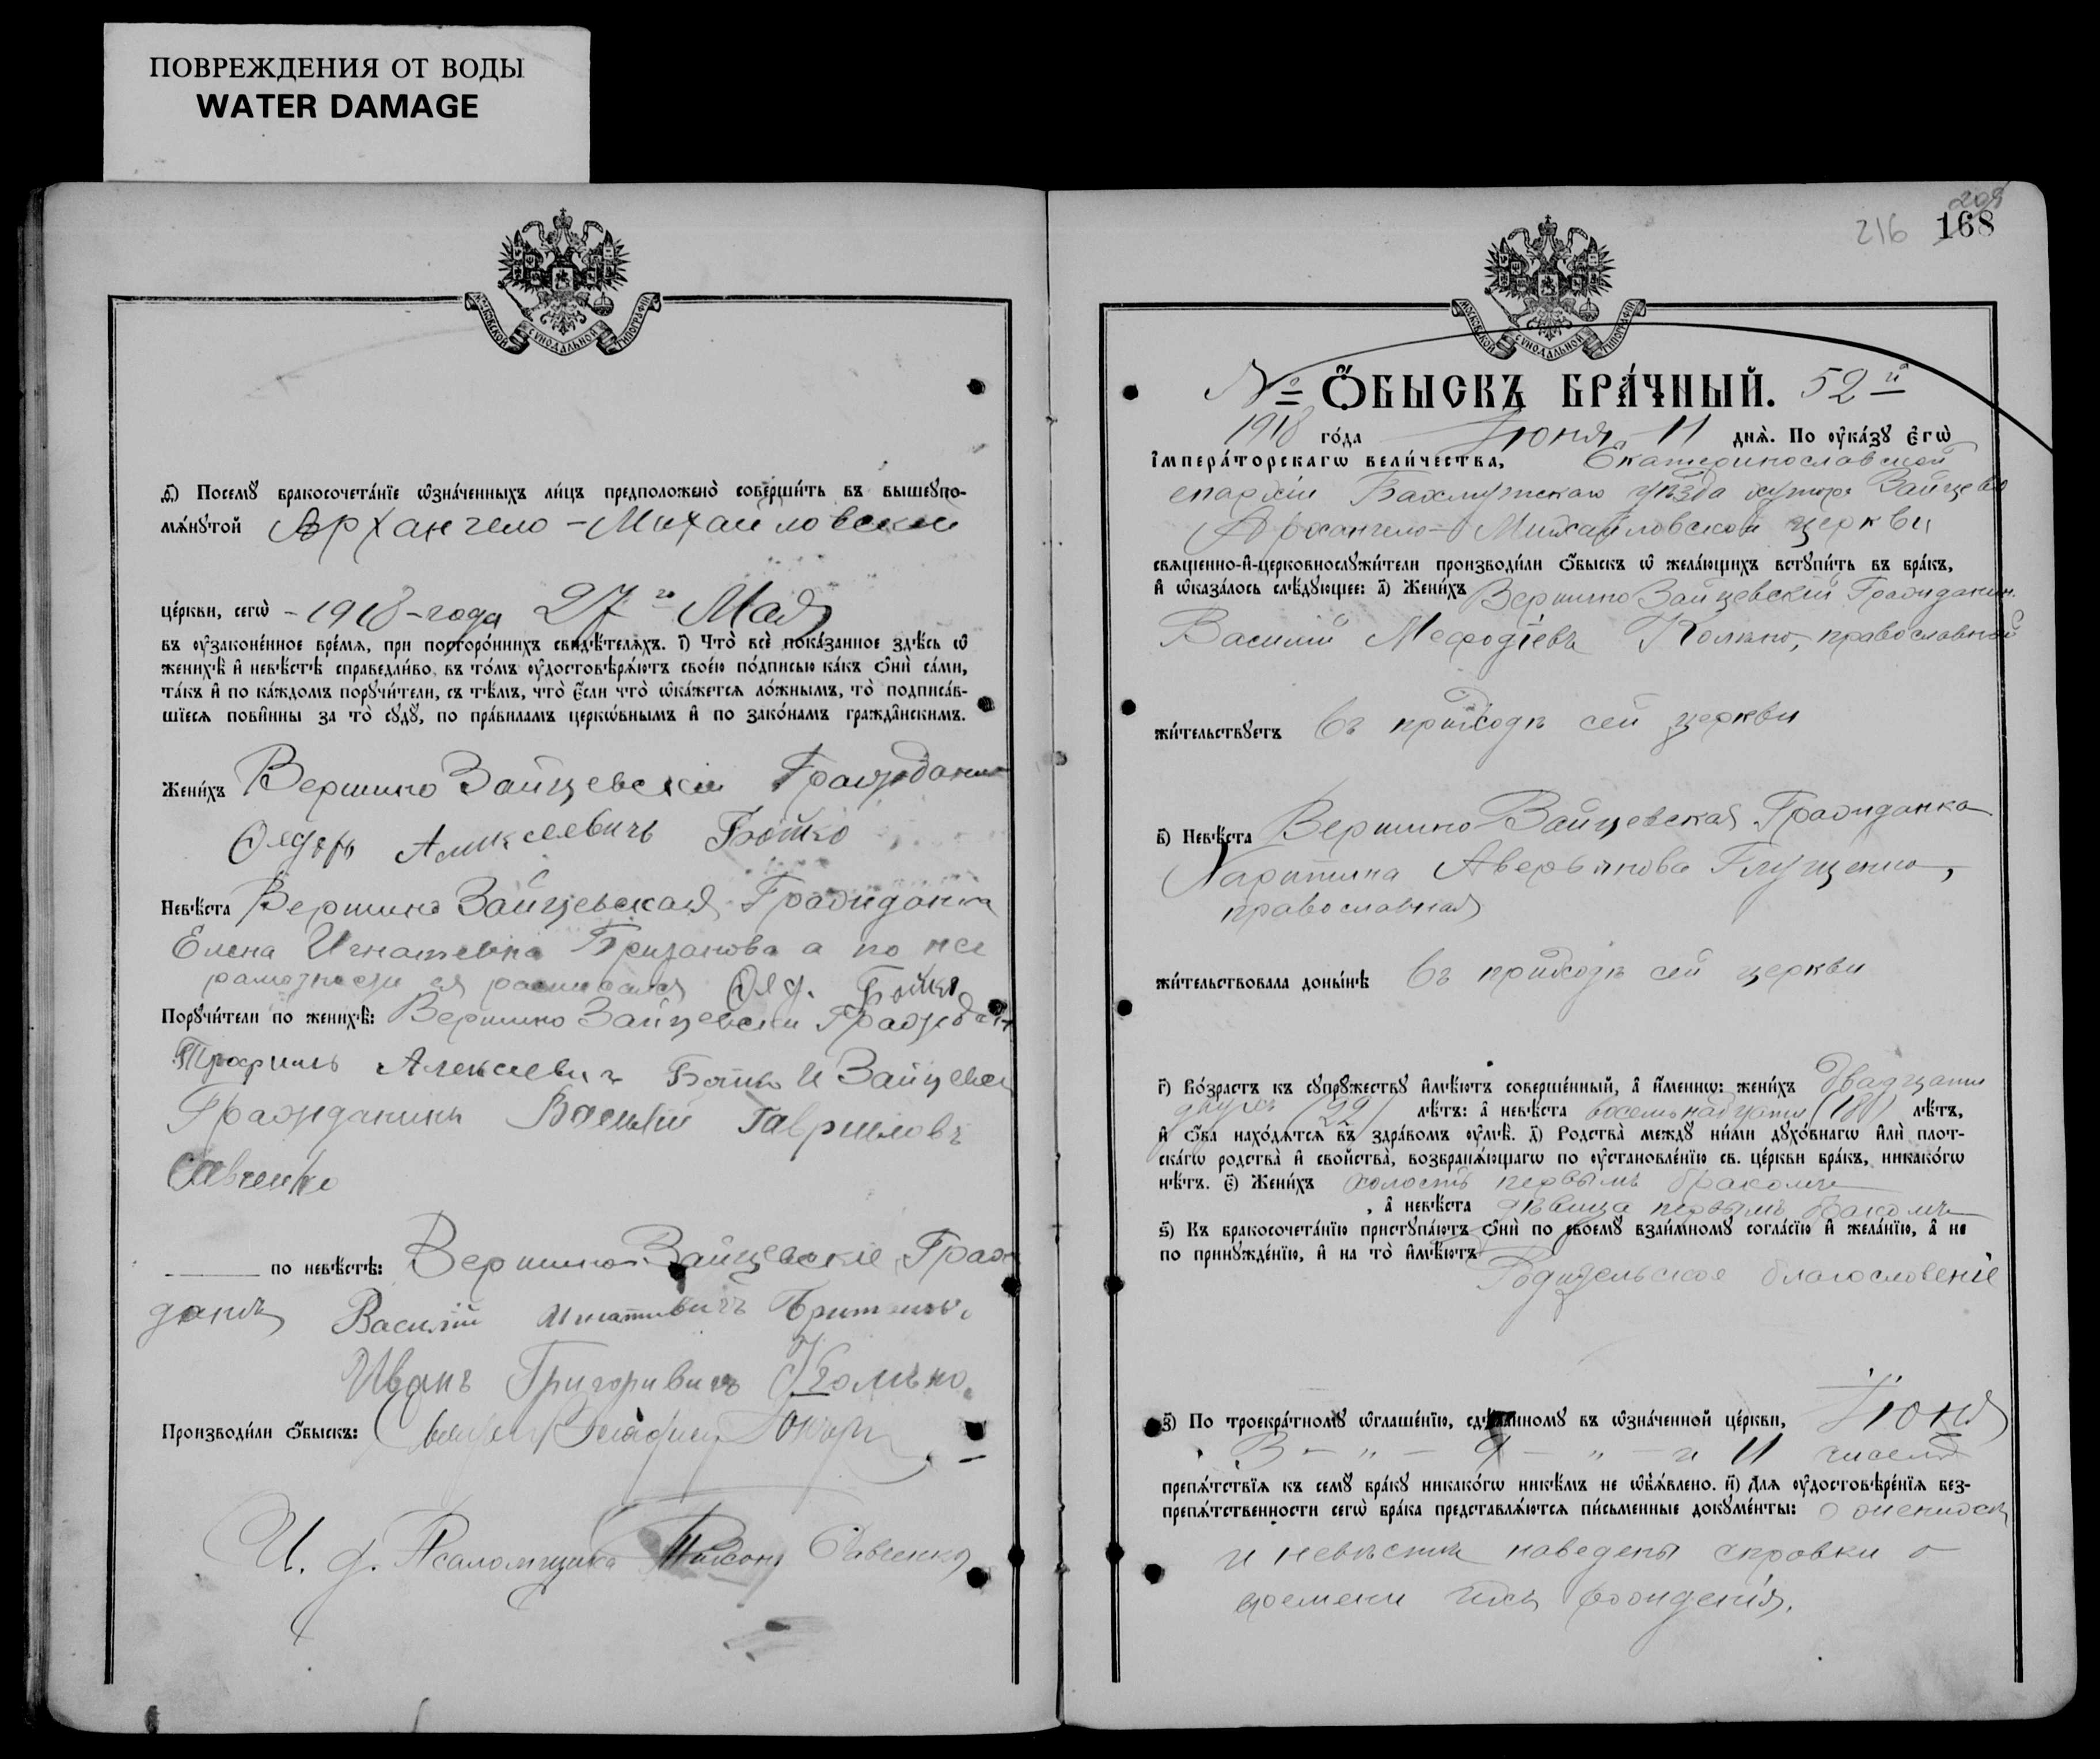 ПОВРЕЖДЕНИЯ ОТ ВОДЫ
WATER DAMAGE
МОСКОВСКОЙ СѴНОДАЛЬНОЙ ТИПОГРАФІИ
ѳ҃) Посемꙋ бракосочета́нїе ѡ҆зна́ченныхъ ли́цъ предположено̀ соверши́ть въ вышеꙋпо-
мѧ́нꙋтой Архангело-Михаиловской
це́ркви, сегѡ̀ -1918-года 27го Мая
въ ᲂу҆зако́ненное вре́мѧ, при посторо́ннихъ свидѣ́телѧхъ. і҃) Что̀ всѐ пока́занное здѣ́сь ѡ҆
женихѣ̀ и҆ невѣ́стѣ справедли́во, въ то́мъ ᲂу҆достовѣрѧ́ютъ своє́ю по́дписью ка́къ ѻ҆нѝ са́ми,
та́къ и҆ по ка́ждомъ порꙋчи́тели, съ тѣ́мъ, что̀ є҆́сли что̀ ѡ҆ка́жетсѧ ло́жнымъ, то̀ подписа́в-
шїесѧ пови́нны за то̀ сꙋдꙋ̀, по пра́виламъ церко́внымъ и҆ по зако́намъ гражда́нскимъ.
Жени́хъ Вершино Зайцевскій Гражданин
Алексеевичъ Бойко
Невѣ́ста Вершино Зайцевская Гражданка
Елена Игнатевна а по не
росписался Бойко
Порꙋчи́тели по женихѣ̀: Вершино Зайцевски Граждан
Трофимъ Алексевичъ Бойко И Зайцевск
Гражданинъ Васили Гавриловъ
Савченко
по невѣ́стѣ: Вершино-Зайцевскіе Граж
дане Василій
Иванъ Григоривичъ Колько
Производи́ли ѻ҆́быскъ:
И. д. Псаломщика Савченко
209
216 168
МОСКОВСКОЙ СѴНОДАЛЬНОЙ ТИПОГРАФІИ
№ Ѻ҆́БЫСКЪ БРА́ЧНЫЙ. 52й
1918 го́да Іюня 11 днѧ̀. По ᲂу҆ка́зꙋ Є҆гѡ̀
І҆мпера́торскагѡ вели́чества, Екатеринославской
епархіи Бахмутскаго уѣзда хутора Зайцево
Архангело-Михайловской церкви
свѧще́нно-и҆-церковнослꙋжи́тели производи́ли ѻ҆́быскъ ѡ҆ жела́ющихъ встꙋпи́ть въ бра́къ,
и҆ ѡ҆каза́лось слѣ́дꙋющее: а҃) Жени́хъ Вершино Зайцевскій Гражданин
Василій Мефодіевъ Колько, православный
жи́тельствꙋетъ въ приходѣ сей церкви
в҃) Невѣ́ста Вершино-Зайцевская Гражданка
Харитина Аверьянова Глущенко,
православная
жи́тельствовала доны́нѣ въ приходѣ сей церкви
г҃) Во́зрастъ къ сꙋпрꙋ́жествꙋ и҆мѣ́ютъ соверше́нный, а҆ и҆́меннѡ: жени́хъ двадцати
двухъ (22) лѣ́тъ: а҆ невѣ́ста восемнадцати (18) лѣ́тъ,
и҆ ѻ҆́ба нахо́дѧтсѧ въ здра́вомъ ᲂу҆мѣ̀. д҃) Родства̀ междꙋ ни́ми дꙋхо́внагѡ и҆лѝ плот-
ска́гѡ родства̀ и҆ сво́йства, возбранѧ́ющагѡ по ᲂу҆становле́нїю св. це́ркви бра́къ, никако́гѡ
нѣ́тъ. є҃) Жени́хъ холостъ первымъ бракомъ
, а҆ невѣ́ста дѣвица первымъ бракомъ
ѕ҃) Къ бракосочета́нїю пристꙋпа́ютъ ѻ҆нѝ по своемꙋ̀ взаи́мномꙋ согла́сїю и҆ жела́нїю, а҆ не
по принꙋжде́нїю, и҆ на то̀ и҆мѣ́ютъ Родительское благословеніе
з҃) По троекра́тномꙋ ѡ҆глаше́нїю, сдѣ́ланномꙋ въ ѡ҆зна́ченной це́ркви, Іюня
3 - " - 9 - " - и 11 чиселъ
препѧ́тствїѧ къ семꙋ̀ бра́кꙋ никако́гѡ никѣ́мъ не ѡ҆б̾ѧ́влено. и҃) Длѧ ᲂу҆достовѣре́нїѧ без-
препѧ́тственности сегѡ̀ бра́ка представлѧ́ютсѧ пи́сьменные докꙋме́нты: о женихѣ
и невѣстѣ наведены справки о
времени ихъ рожденія.